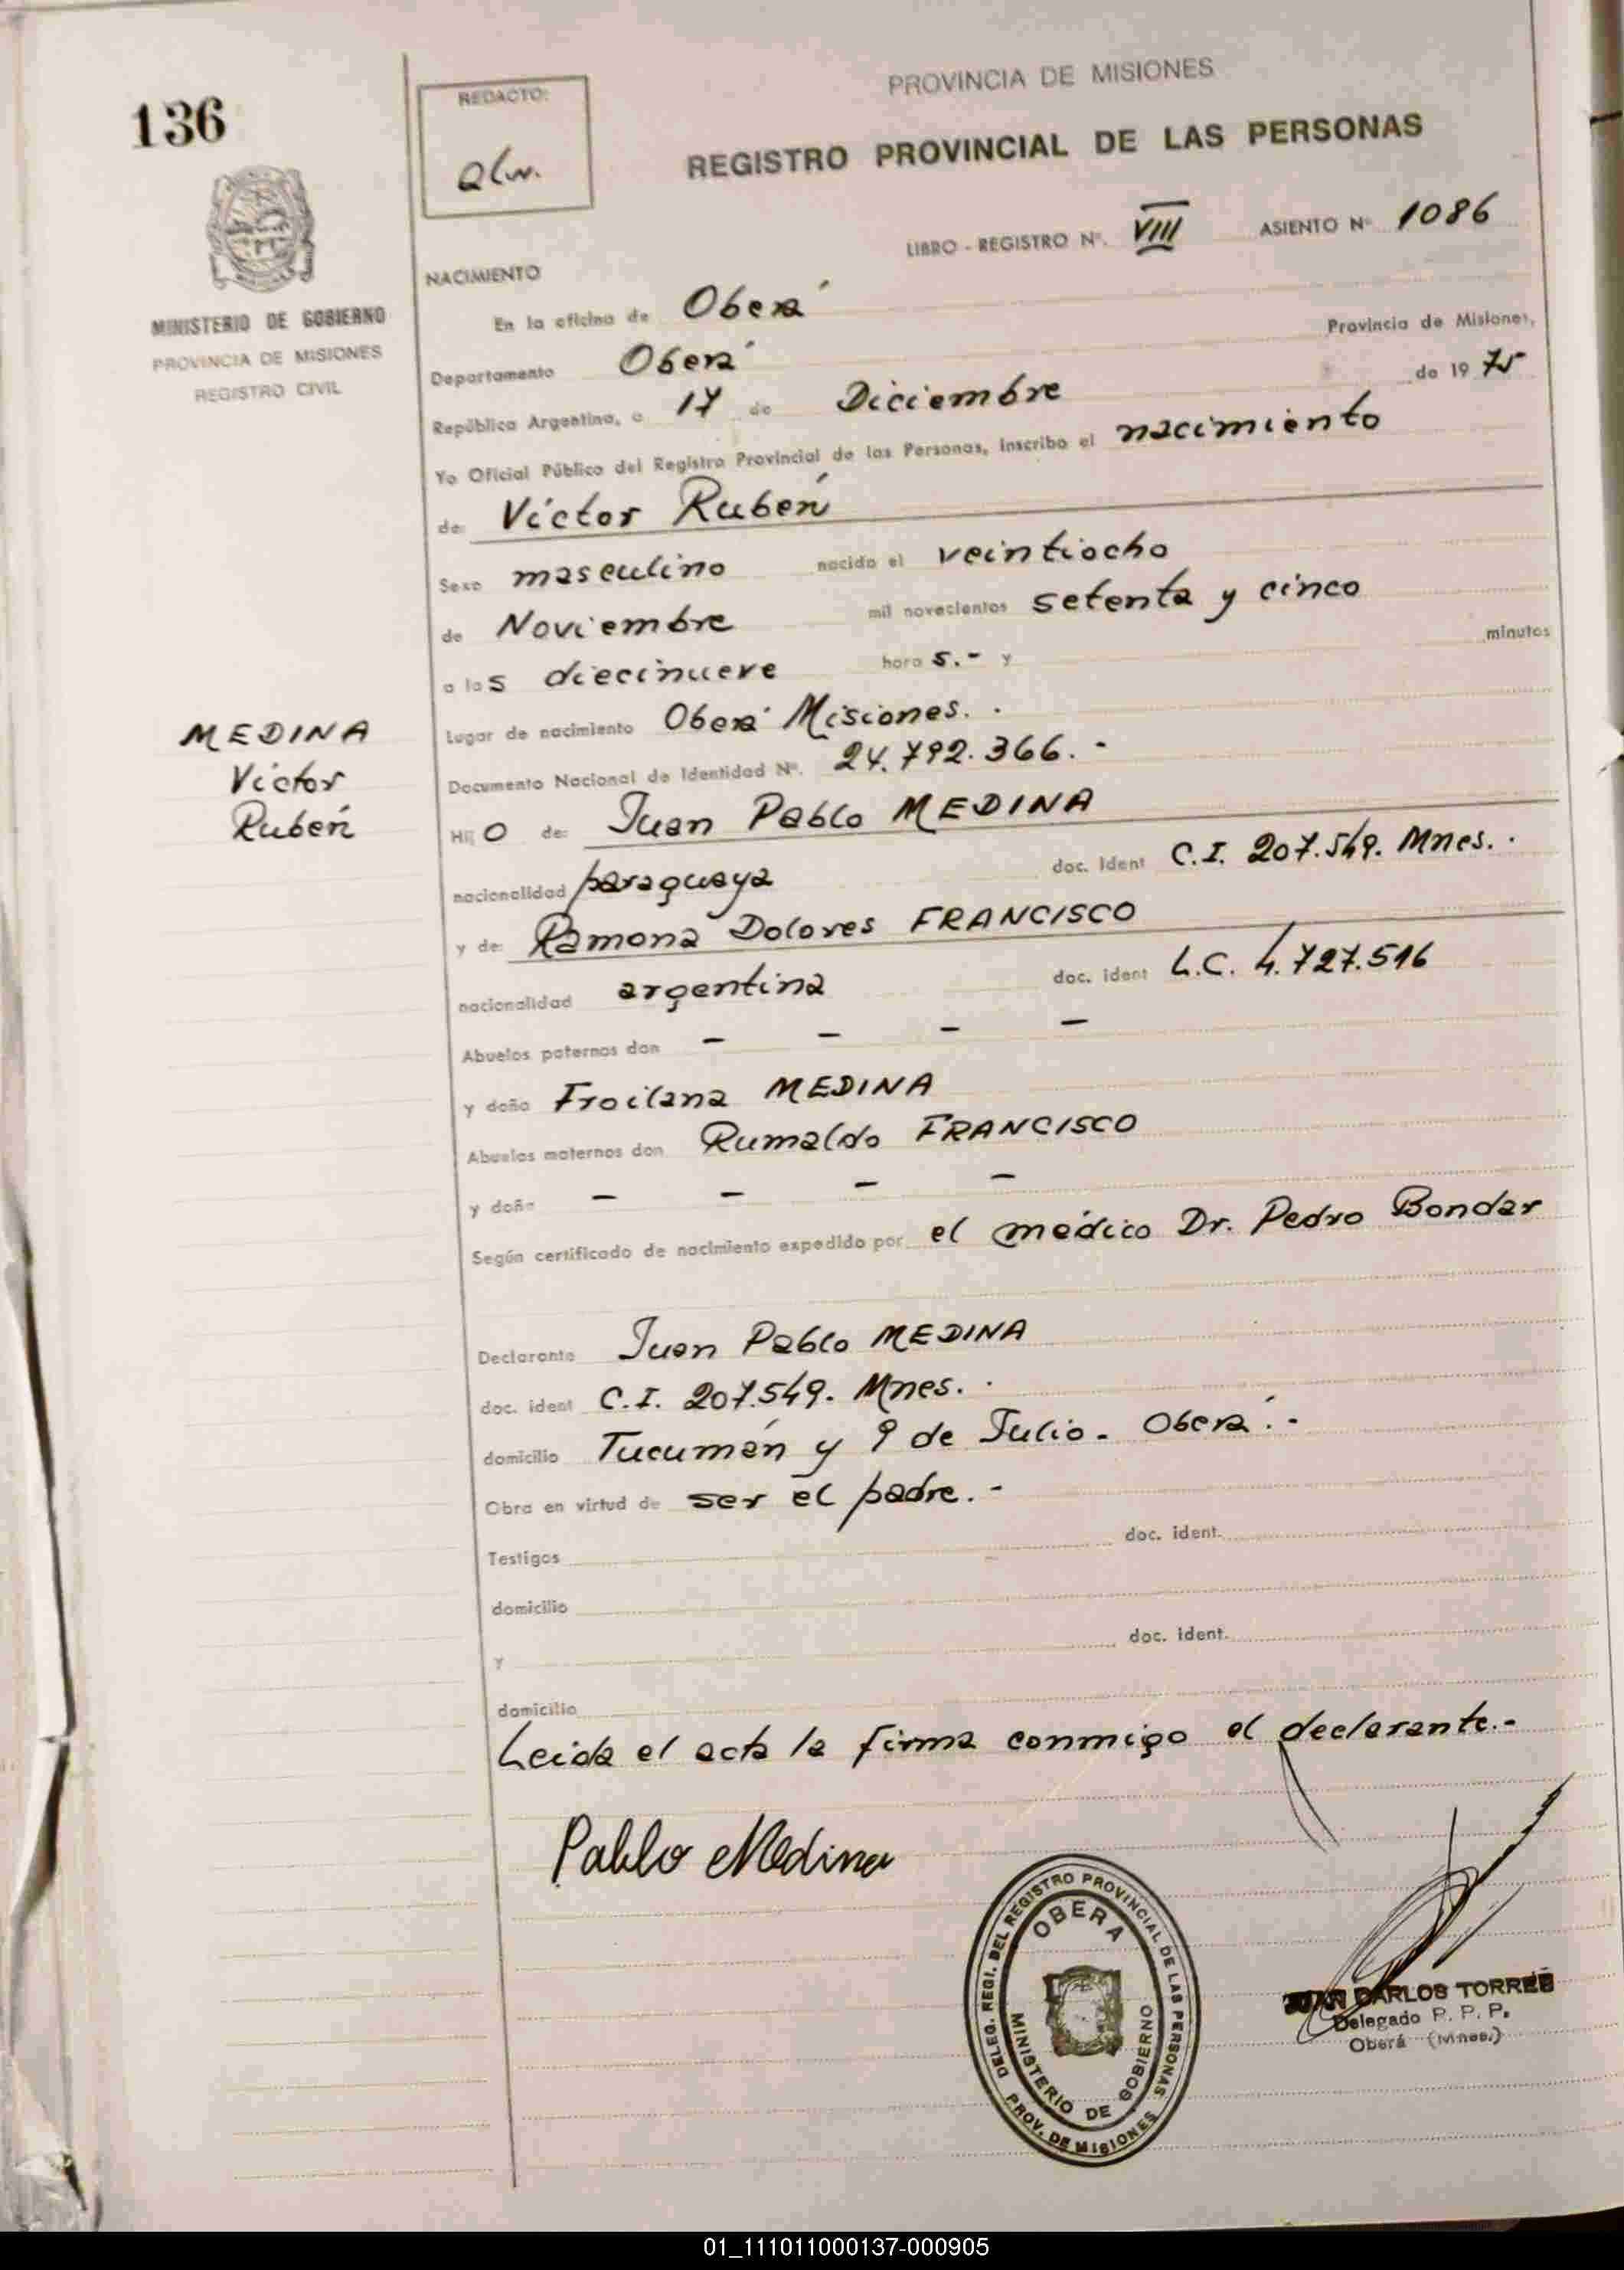 136
REDACTO:
PROVINCIA DE MISIONES
REGISTRO PROVINCIAL DE LAS PERSONAS
LIBRO - REGISTRO Nº. VIII ASIENTO Nº 1086
MINISTERIO DE GOBIERNO
PROVINCIA DE MISIONES
REGISTRO CIVIL
NACIMIENTO
En la oficina de Oberá
Departamento Oberá Provincia de Misiones,
República Argentina, a 17 de Diciembre de 1975
Yo Oficial Público del Registro Provincial de las Personas, inscribo el nacimiento
de: Víctor Rubén
Sexo masculino nacido el veintiocho
de Noviembre mil novecientos setenta y cinco
a las diecinueve hora s.- y minutos
Lugar de nacimiento Oberá Misiones. .
MEDINA
Víctor
Rubén
Documento Nacional de Identidad Nº. 24.792.366. -
Hijo de: Juan Pablo MEDINA
nacionalidad paraguaya doc. ident C.I. 207.549. Mnes. .
y de: Ramona Dolores FRANCISCO
nacionalidad argentina doc. ident L.C. 4.727.516
Abuelos paternos don - - - -
y doña Froilana MEDINA
Abuelos maternos don Rumaldo FRANCISCO
y doña - - - -
Según certificado de nacimiento expedido por el médico Dr. Pedro Bondar
Declarante Juan Pablo MEDINA
doc. ident C.I. 207.549. Mnes. .
domicilio Tucumán y 9 de Julio. Oberá. -
Obra en virtud de ser el padre. -
Testigos doc. ident.
domicilio
Y doc. ident.
domicilio
Leida el acta la firma conmigo el declarante.-
Pablo Medina
DELEG. REGI. DEL REGISTRO PROVINCIAL DE LAS PERSONAS
PROV. DE MISIONES
OBERA
MINISTERIO DE GOBIERNO
JUAN CARLOS TORRES
Delegado P. P. P.
Oberá (Mnes.)
01_111011000137-000905